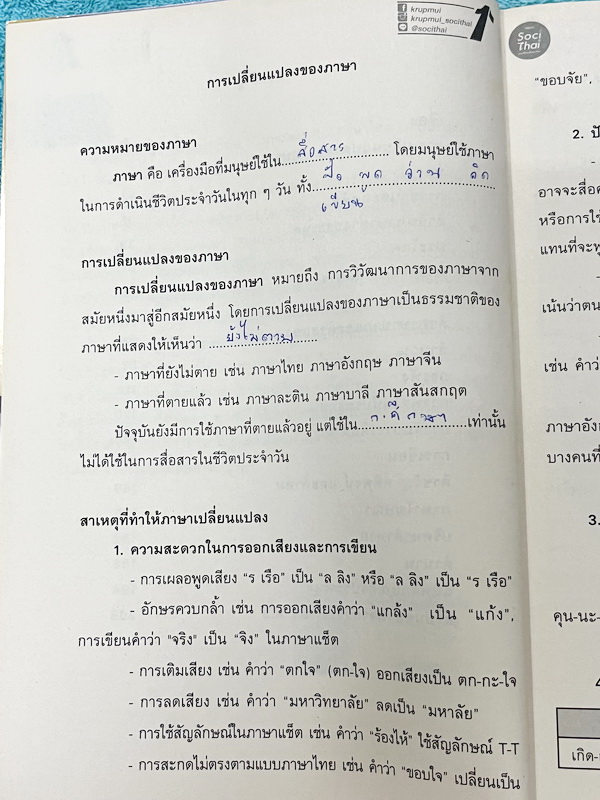 krupmui
krupmui_socithai
@socithai
การเปลี่ยนแปลงของภาษา
ความหมายของภาษา
ภาษา คือ เครื่องมือที่มนุษย์ใช้ใน...สื่อสาร... โดยมนุษย์ใช้ภาษา
ในการดำเนินชีวิตประจำวันในทุก ๆ วัน ทั้ง... พูด อ่าน คิด
เขียน
การเปลี่ยนแปลงของภาษา
การเปลี่ยนแปลงของภาษา หมายถึง การวิวัฒนาการของภาษาจาก
สมัยหนึ่งมาสู่อีกสมัยหนึ่ง โดยการเปลี่ยนแปลงของภาษาเป็นธรรมชาติของ
ภาษาที่แสดงให้เห็นว่า ...ยังไม่ตาย...
- ภาษาที่ยังไม่ตาย เช่น ภาษาไทย ภาษาอังกฤษ ภาษาจีน
- ภาษาที่ตายแล้ว เช่น ภาษาละติน ภาษาบาลี ภาษาสันสกฤต
ปัจจุบันยังมีการใช้ภาษาที่ตายแล้วอยู่ แต่ใช้ใน... ...เท่านั้น
ไม่ได้ใช้ในการสื่อสารในชีวิตประจำวัน
สาเหตุที่ทำให้ภาษาเปลี่ยนแปลง
1. ความสะดวกในการออกเสียงและการเขียน
- การเผลอพูดเสียง "ร เรือ" เป็น "ล ลิง" หรือ "ล ลิง" เป็น "ร เรือ"
- อักษรควบกล้ำ เช่น การออกเสียงคำว่า "แกล้ง" เป็น "แก้ง",
การเขียนคำว่า "จริง" เป็น "จิง" ในภาษาแช็ต
- การเติมเสียง เช่น คำว่า "ตกใจ" (ตก-ใจ) ออกเสียงเป็น ตก-กะ-ใจ
- การลดเสียง เช่น คำว่า "มหาวิทยาลัย" ลดเป็น "มหาลัย"
- การใช้สัญลักษณ์ในภาษาแช็ต เช่น คำว่า "ร้องไห้" ใช้สัญลักษณ์ T-T
- การสะกดไม่ตรงตามแบบภาษาไทย เช่น คำว่า "ขอบใจ" เปลี่ยนเป็น
Soci
Thai
"ขอบจัย",
2.
-
อาจจะสื่อ
หรือการใช้
แทนที่จะ
-
เน้นว่าตน
เช่น คำว่า
ภาษาอังก
บางคนที่
3.
คุน-นะ-
เกิด-